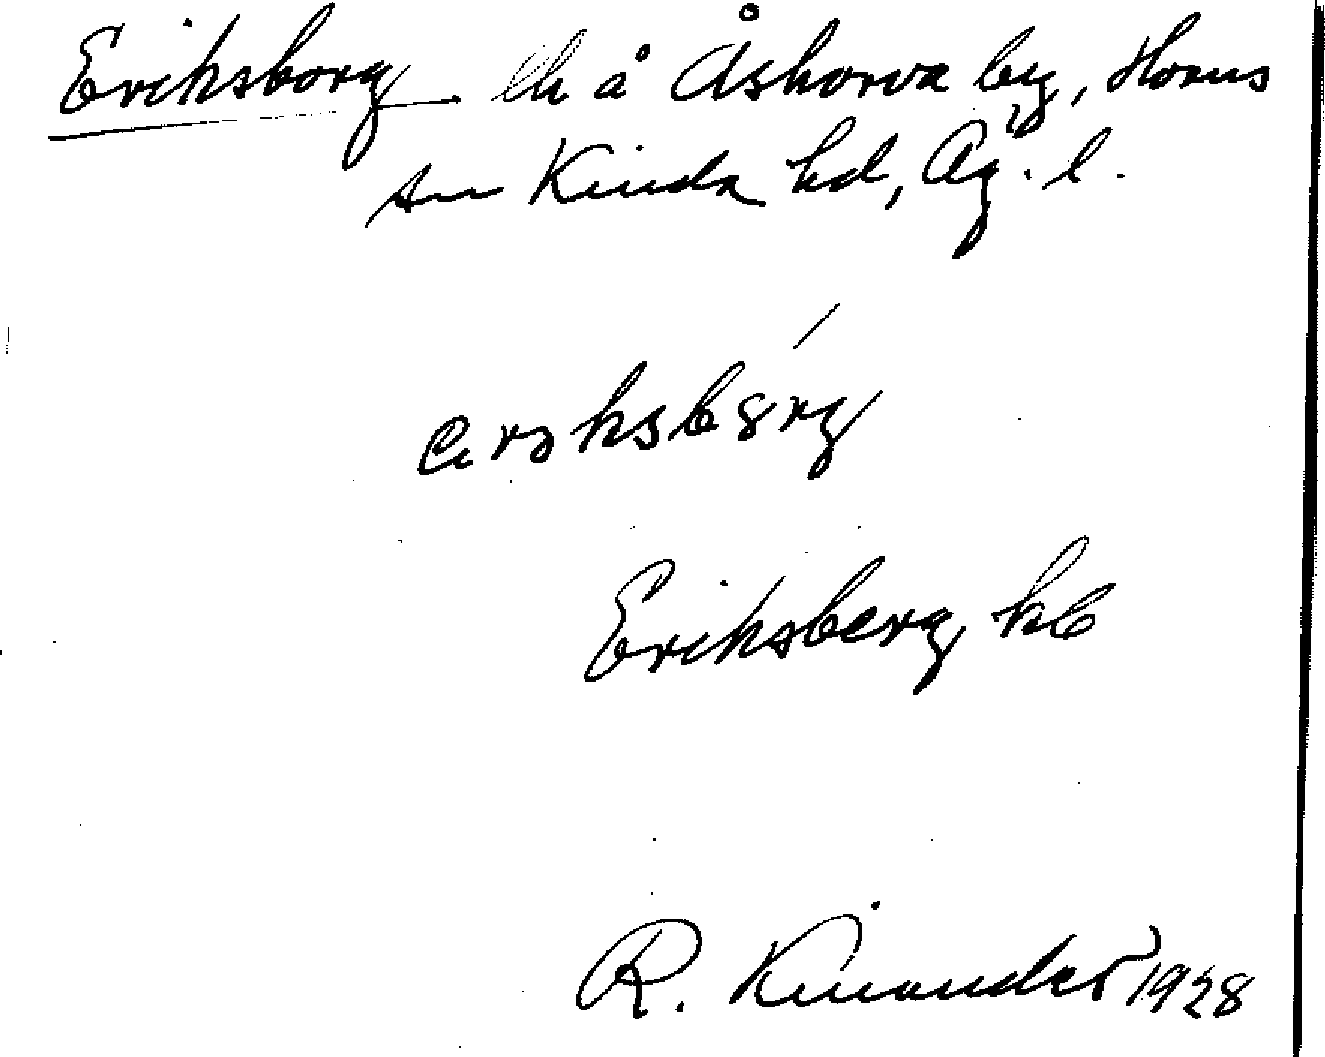 Eriksborg lh å Åskorva by, Horns
sn Kinda hd, Ög. l.
Eriksberg, kb
R. Kinander 1928